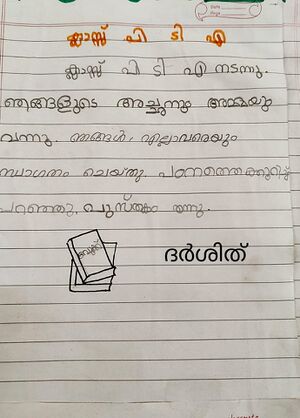 ക്ലാസ്സ് പി ടി എ
ക്ലാസ്സ് പി ടി എ നടന്നു.
ഞങ്ങളുടെ അച്ഛനും അമ്മയും
വന്നു. ഞങ്ങൾ എല്ലാവരെയും
സ്വാഗതം ചെയ്തു. പഠനത്തെക്കുറിച്ച്
പറഞ്ഞു. പുസ്തകം തന്നു.
ദർശിത്